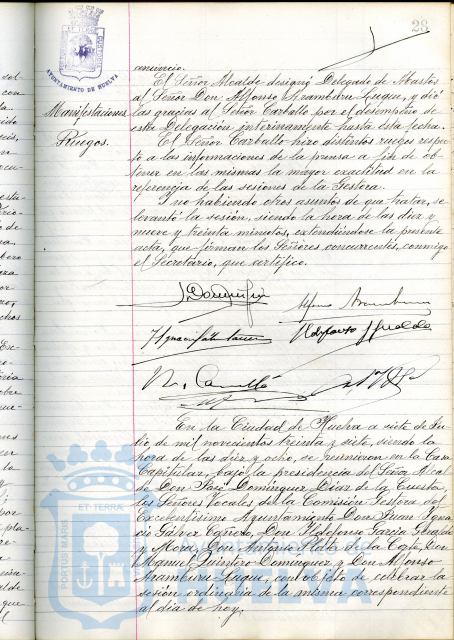 28
AYUNTAMIENTO DE HUELVA
anuncio.
El Señor Alcalde designó Delegado de Abastos
Manifestaciones
al Señor Don Alfonso Aramburu Luque, y dió
las gracias al Señor Carballo por el desempeño de
esta Delegación interinamente hasta esta fecha.
Ruegos.
El Señor Carballo hizo distintos ruegos respec-
to a las informaciones de la prensa a fin de ob-
tener en las mismas la mayor exactitud en la
referencia de las sesiones de la Gestora.
Y no habiendo otros asuntos de que tratar, se
levantó la sesión, siendo la hora de las diez y
nueve y treinta minutos, extendiéndose la presente
acta, que firman los Señores concurrentes, conmigo
el Secretario, que certifico.
Alfonso Aramburu
En la Ciudad de Huelva a siete de Ju-
lio de mil novecientos treinta y siete, siendo la
hora de las diez y ocho, se reunieron en la Casa
Capitular, bajo la presidencia del Señor Alcal-
de Don José Domínguez Díaz de la Cuesta,
los Señores Vocales de la Comisión Gestora del
Excelentísimo Ayuntamiento Don Juan Igna-
cio Gálvez Cañero, Don Ildefonso García
y Mora, Don Antonio Plata de la Corte, Don
Manuel Quintero Domínguez y Don Alfonso
Aramburu Luque, con objeto de celebrar la
sesión ordinaria de la misma correspondiente
al día de hoy.
PORTUS MARIS ET TERRAE
HUELVA